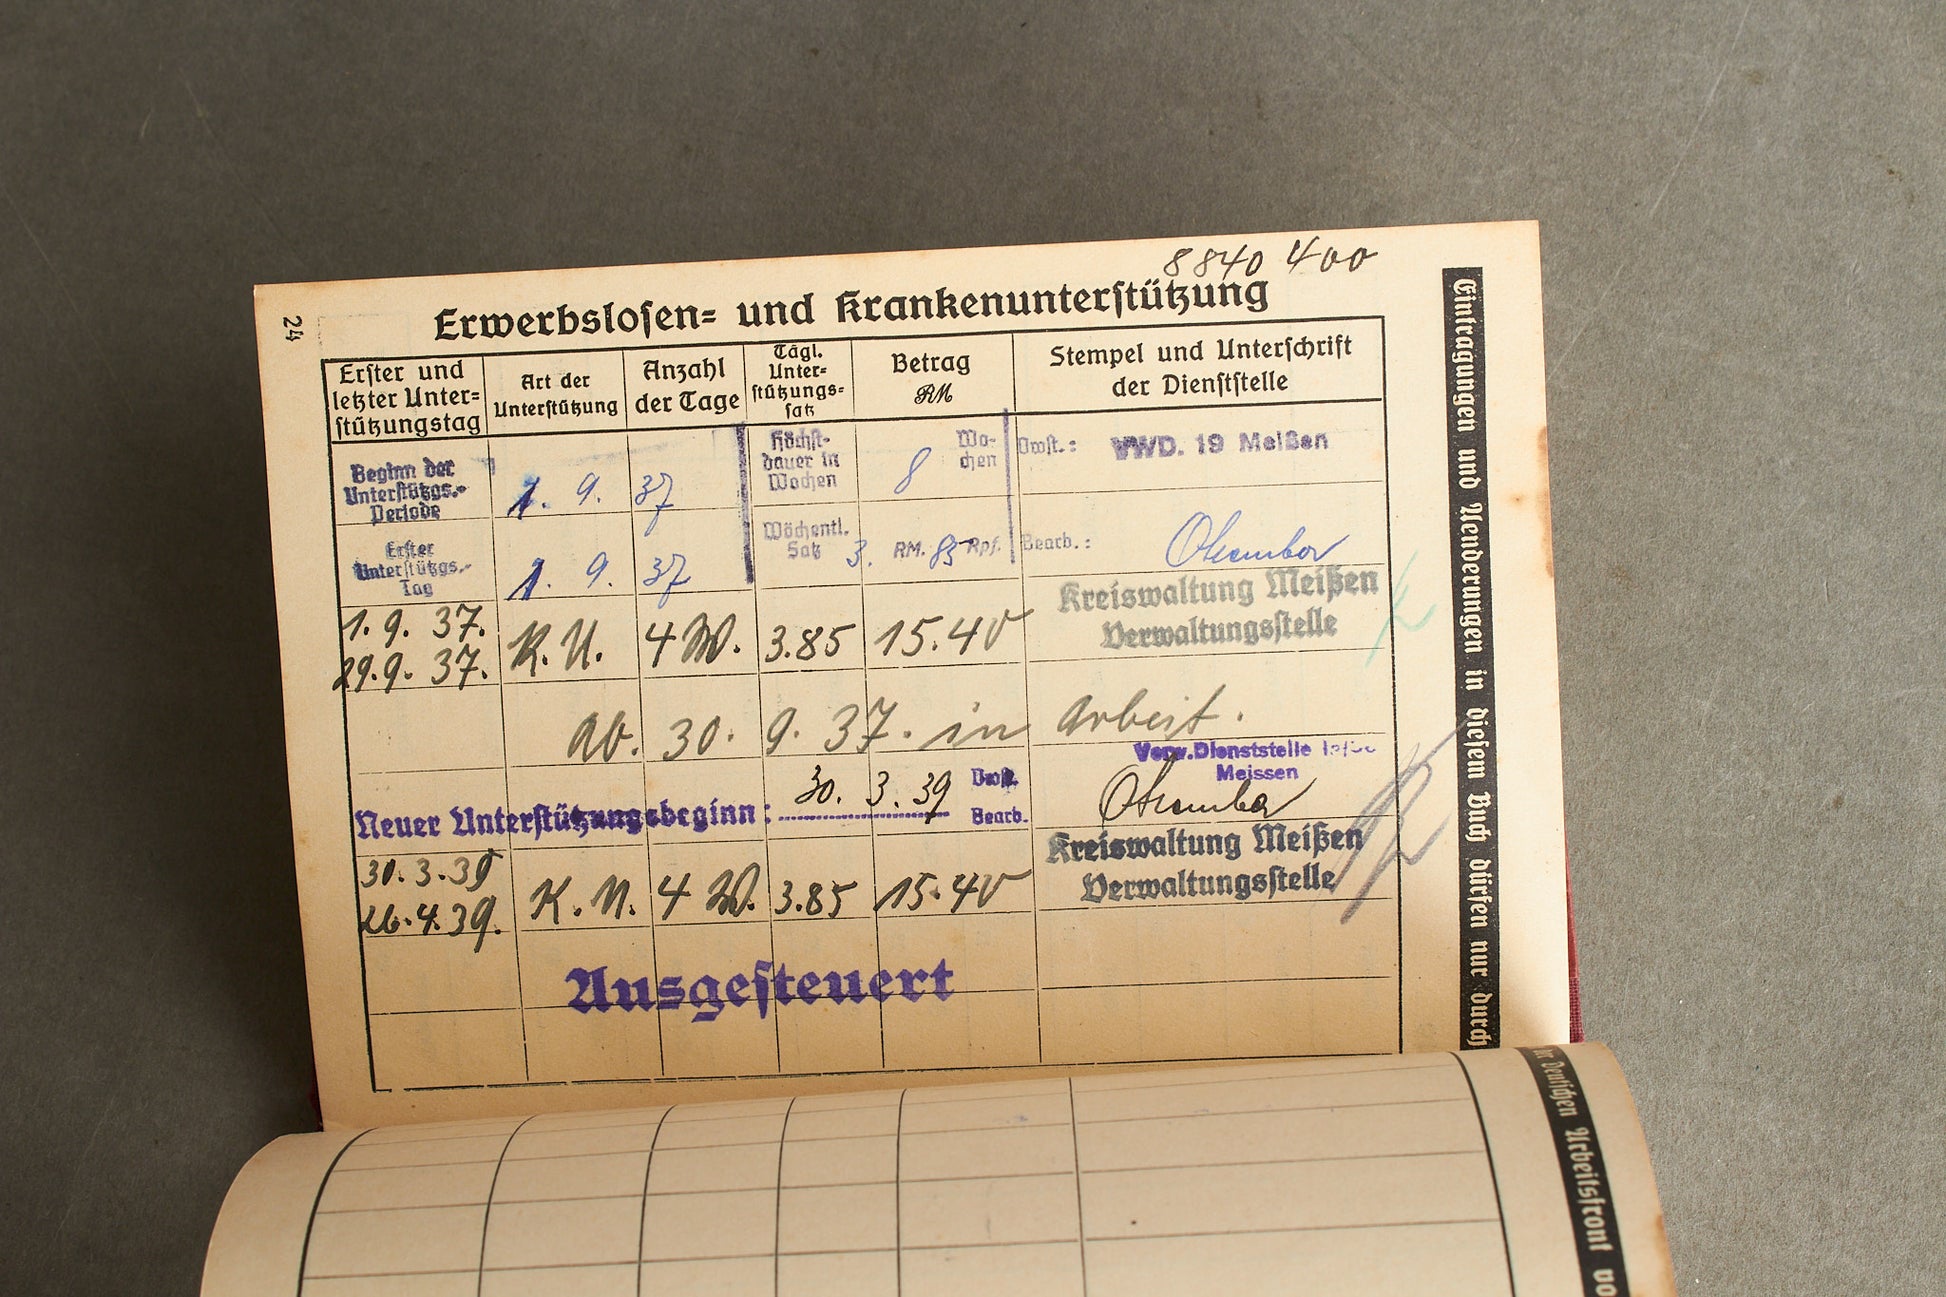 8840 400
24
Erwerbslosen- und Krankenunterstützung
Erster und
letzter Unter-
stützungstag
Art der
Unterstützung
Anzahl
der Tage
Tägl.
Unter-
stützungs-
satz
Betrag
RM
Stempel und Unterschrift
der Dienststelle
Beginn der
Unterstützgs.-
Periode
1. 9. 37
Höchst-
dauer in
Wochen
8
Wo-
chen
Vwst.: VWD. 19 Meißen
Erster
Unterstützgs.-
Tag
1. 9. 37
Wöchentl.
Satz
3. RM. 85 Rpf.
Bearb.:
Kreiswaltung Meißen
Verwaltungsstelle
1. 9. 37.
29. 9. 37.
K. U. 4 W. 3.85 15.40
Ab. 30. 9. 37. in Arbeit.
Verw.Dienststelle
Meissen
Neuer Unterstützungsbeginn: 30. 3. 39
Vwst.
Bearb.
Kreiswaltung Meißen
Verwaltungsstelle
30. 3. 39
26. 4. 39.
K. U. 4 W. 3.85 15.40
Ausgesteuert
Eintragungen und Aenderungen in diesem Buch dürfen nur durch
der Deutschen Arbeitsfront vo